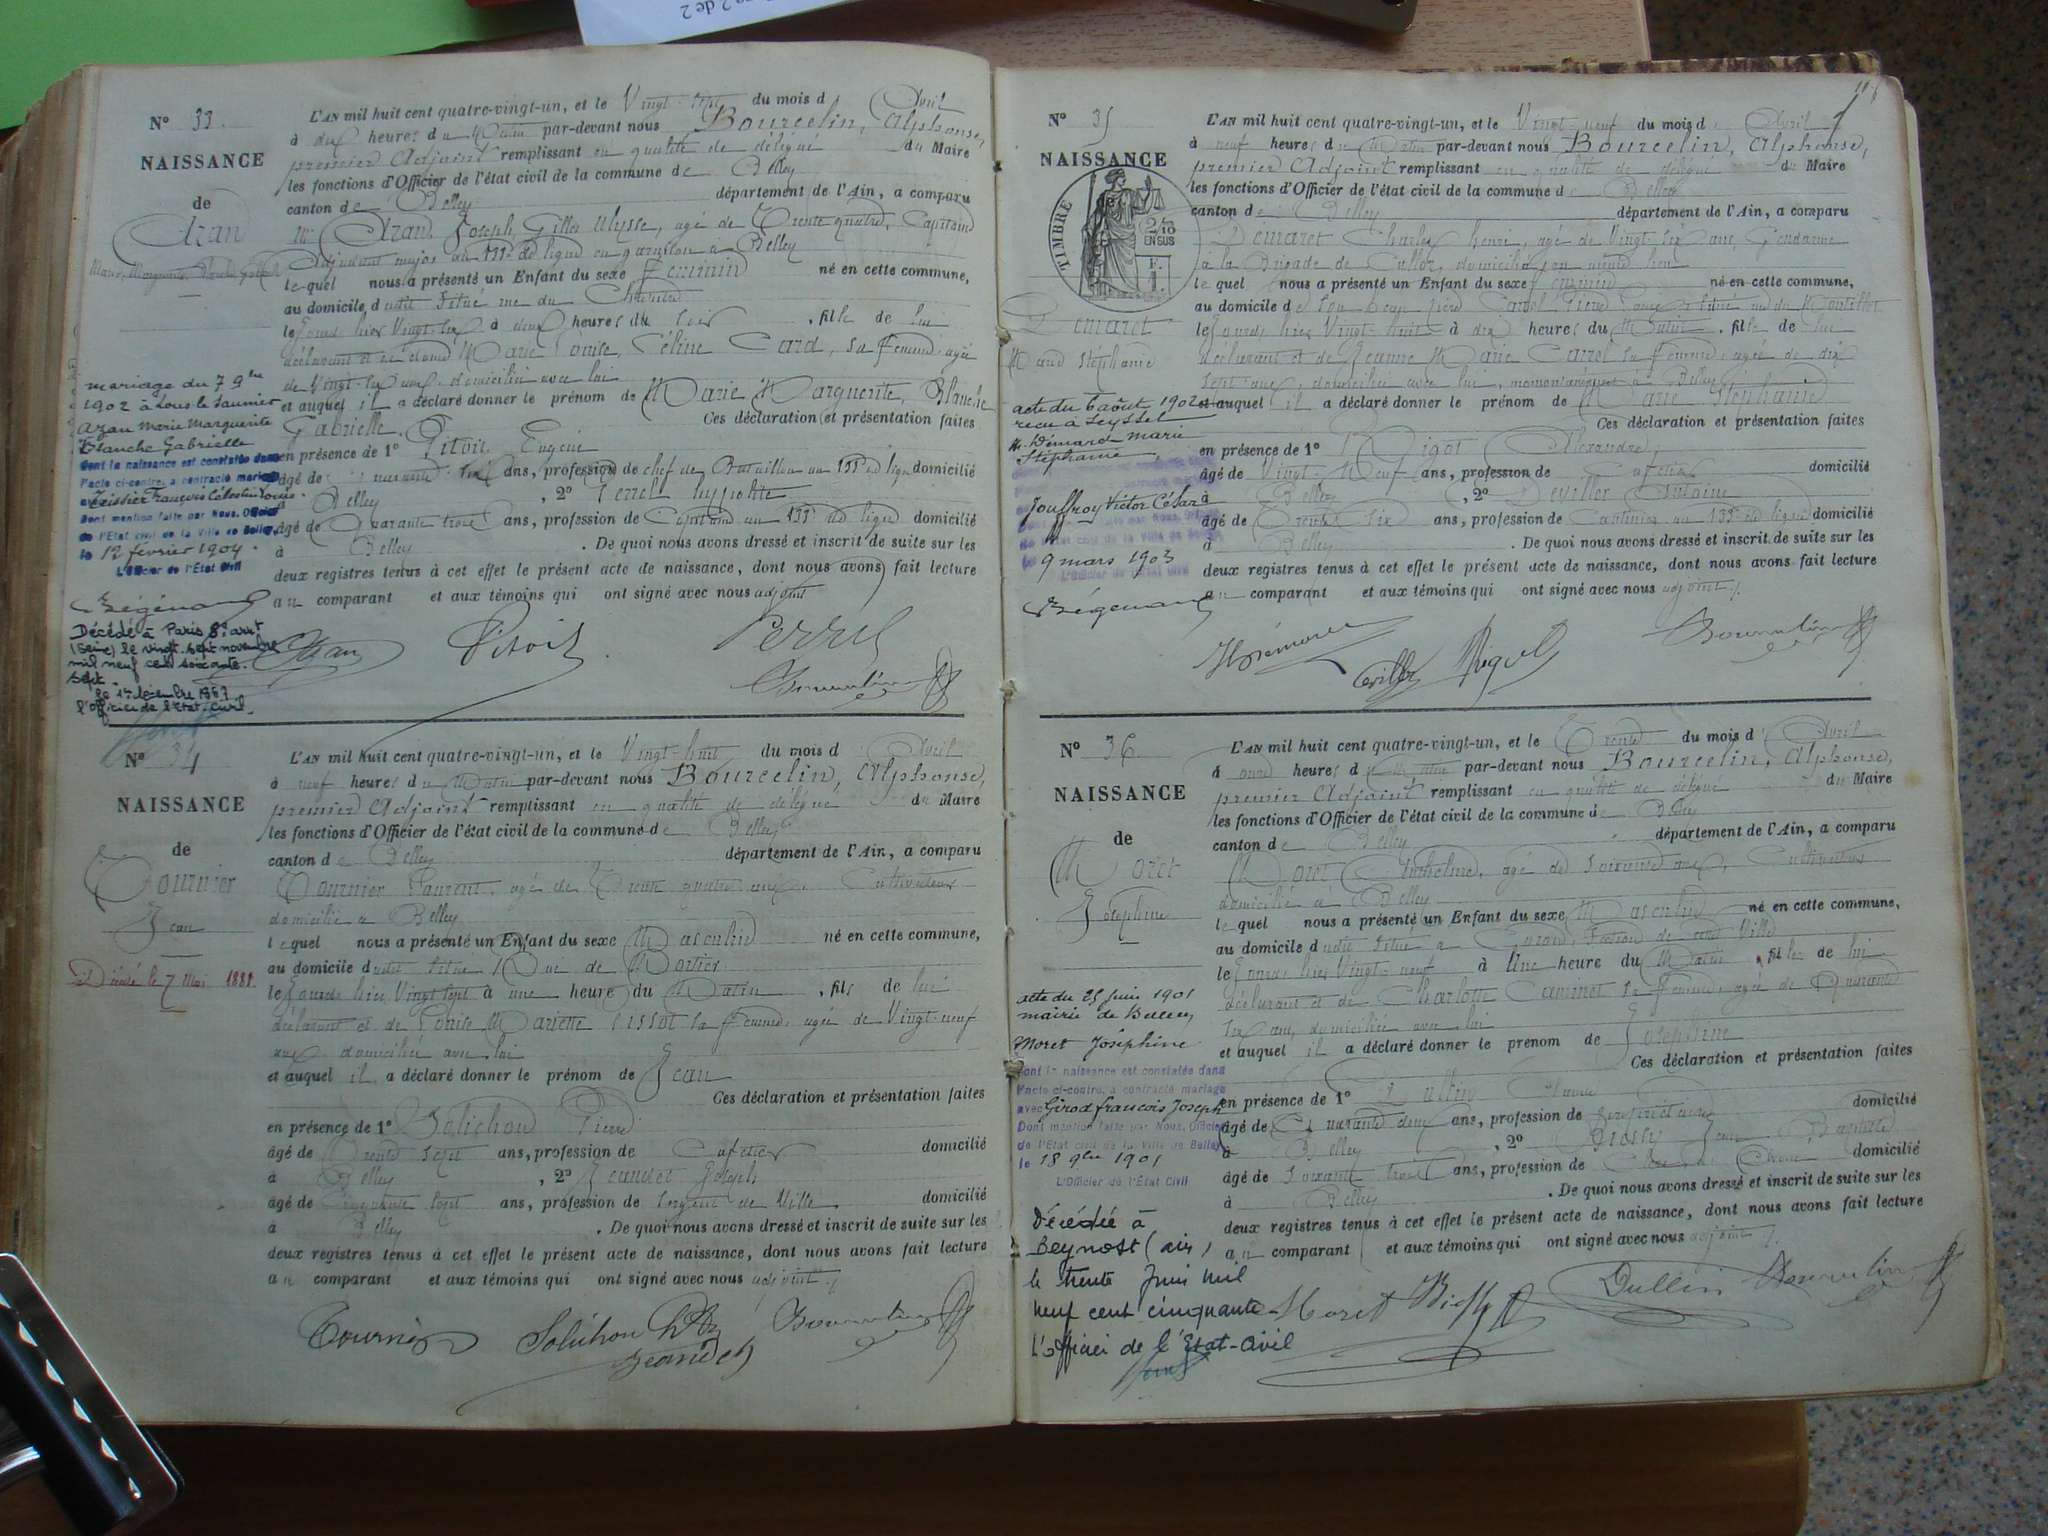 Nº 33.
NAISSANCE
de
Azan
Marie, Marguerite, Blanche Gabrielle
L'AN mil huit cent quatre-vingt-un, et le Vingt-sept du mois d Avril
à dix heures du Matin par-devant nous Bourcelin, Alphonse,
premier Adjoint remplissant en qualité de délégué du Maire
les fonctions d'Officier de l'état civil de la commune de Belley
canton de Belley département de l'Ain, a comparu
Mr Azan, Joseph, Gilles Ulysse, agé de Trente quatre, Capitaine
adjudant major au 133e de ligne en garnison à Belley
lequel nous a présenté un Enfant du sexe Féminin né en cette commune,
au domicile dudit situé rue du
le jourd'hier Vingt-six à deux heures du soir, fille de lui
déclarant et de dame Marie Louise, Céline Card, sa femme, agée
de Vingt-six ans, domiciliée avec lui
et auquel il a déclaré donner le prénom de Marie Marguerite, Blanche
Gabrielle. Ces déclaration et présentation faites
en présence de 1º Pitois, Eugène
âgé de quarante six ans, profession de chef de Bataillon au 133e de ligne domicilié
à Belley, 2º Perrel hypolite
âgé de Quarante trois ans, profession de Capitaine au 133e de ligne domicilié
à Belley. De quoi nous avons dressé et inscrit de suite sur les
deux registres tenus à cet effet le présent acte de naissance, dont nous avons fait lecture
au comparant et aux témoins qui ont signé avec nous adjoint
mariage du 7 9bre
1902 à Lons le Saunier
Azan Marie Marguerite
Blanche Gabrielle
Dont la naissance est constatée dans
l'acte ci-contre, a contracté mariage
avec Teissier François Célestin Louis.
Dont mention faite par Nous, Officier
de l'Etat civil de la Ville de Belley,
le 12 février 1904.
L'Officier de l'État Civil
Décédé à Paris 8e arrt
(Seine) le vingt-sept novembre
mil neuf cent soixante-
sept.
le 1er décembre 1967
l'Officier de l'Etat-Civil.
Azan Pitois Perrel
Bourcelin
Nº 34
NAISSANCE
de
Tournier
Jean
Décédé le 7 Mai 1881
L'AN mil huit cent quatre-vingt-un, et le Vingt-huit du mois d Avril
à neuf heures du Matin par-devant nous Bourcelin, Alphonse,
premier Adjoint remplissant en qualité de délégué du Maire
les fonctions d'Officier de l'état civil de la commune de Belley
canton de Belley département de l'Ain, a comparu
Tournier Laurent, agé de Trente quatre ans, Cultivateur
domicilié à Belley
lequel nous a présenté un Enfant du sexe Masculin né en cette commune,
au domicile dudit situé Rue de
le jourd'hier Vingt-sept à une heure du Matin, fils de lui
déclarant et de Louise Mariette Pissot sa femme, agée de Vingt-neuf
ans domiciliée avec lui
et auquel il a déclaré donner le prénom de Jean
Ces déclaration et présentation faites
en présence de 1º Bolichon Pierre
âgé de Trente sept ans, profession de Cafetier domicilié
à Belley, 2º Jeandet Joseph
âgé de Cinquante sept ans, profession de Sergent de Ville domicilié
à Belley. De quoi nous avons dressé et inscrit de suite sur les
deux registres tenus à cet effet le présent acte de naissance, dont nous avons fait lecture
au comparant et aux témoins qui ont signé avec nous adjoint
Tournier Bolichon Jeandet Bourcelin
Nº 35
NAISSANCE
TIMBRE
2/10
EN SUS
F.
1
Marie Stéphanie
L'AN mil huit cent quatre-vingt-un, et le Vingt-neuf du mois d Avril
à neuf heures du Matin par-devant nous Bourcelin, Alphonse,
premier Adjoint remplissant en qualité de délégué du Maire
les fonctions d'Officier de l'état civil de la commune de Belley
canton de Belley département de l'Ain, a comparu
Charles henri, agé de Vingt six ans, Gendarme
à la Brigade de Culoz, domicilié au même lieu
lequel nous a présenté un Enfant du sexe Féminin né en cette commune,
au domicile de son beau-père
le jourd'hier Vingt-huit à dix heures du Matin, fille de lui
déclarant et de Jeanne Marie Carrel sa femme, agée de dix
sept ans, domiciliée avec lui, momentanément à Belley
et auquel il a déclaré donner le prénom de Marie Stéphanie
Ces déclaration et présentation faites
en présence de 1º Rigot Alexandre,
âgé de Vingt-Neuf ans, profession de Cafetier domicilié
à Belley, 2º Deviller Antoine
âgé de Trente six ans, profession de Cantinier au 133e de ligne domicilié
à Belley. De quoi nous avons dressé et inscrit de suite sur les
deux registres tenus à cet effet le présent acte de naissance, dont nous avons fait lecture
au comparant et aux témoins qui ont signé avec nous adjoint
acte du 6 août 1902
reçu à Seyssel
Marie
Stéphanie
Jouffroy Victor César
9 mars 1903
L'Officier de l'État Civil
Bourcelin
Nº 36
NAISSANCE
de
Moret
Joséphine
L'AN mil huit cent quatre-vingt-un, et le Trente du mois d Avril
à onze heures du Matin par-devant nous Bourcelin, Alphonse,
premier Adjoint remplissant en qualité de délégué du Maire
les fonctions d'Officier de l'état civil de la commune de Belley
canton de Belley département de l'Ain, a comparu
Moret Anthelme, agé de soixante ans, Cultivateur
domicilié à Belley
lequel nous a présenté un Enfant du sexe Masculin né en cette commune,
au domicile dudit situé à
le jourd'hier Vingt-neuf à Une heure du Matin, fille de lui
déclarant et de Charlotte Caminet sa femme, agée de Quarante
six ans, domiciliée avec lui
et auquel il a déclaré donner le prénom de Joséphine
Ces déclaration et présentation faites
en présence de 1º Dullin Claude
âgé de Quarante deux ans, profession de domicilié
à Belley, 2º Jean Baptiste
âgé de Soixante trois ans, profession de domicilié
à Belley. De quoi nous avons dressé et inscrit de suite sur les
deux registres tenus à cet effet le présent acte de naissance, dont nous avons fait lecture
au comparant et aux témoins qui ont signé avec nous adjoint
acte du 25 juin 1901
mairie de Belley
Moret Joséphine
Dont la naissance est constatée dans
l'acte ci-contre, a contracté mariage
avec Girod françois Joseph
Dont mention faite par Nous, Officier
de l'Etat civil de la Ville de Belley
le 18 9bre 1901
L'Officier de l'État Civil
Décédée à
Beynost (Ain)
le trente Juin mil
neuf cent cinquante
L'Officier de l'Etat-Civil
Moret Dullin Bourcelin